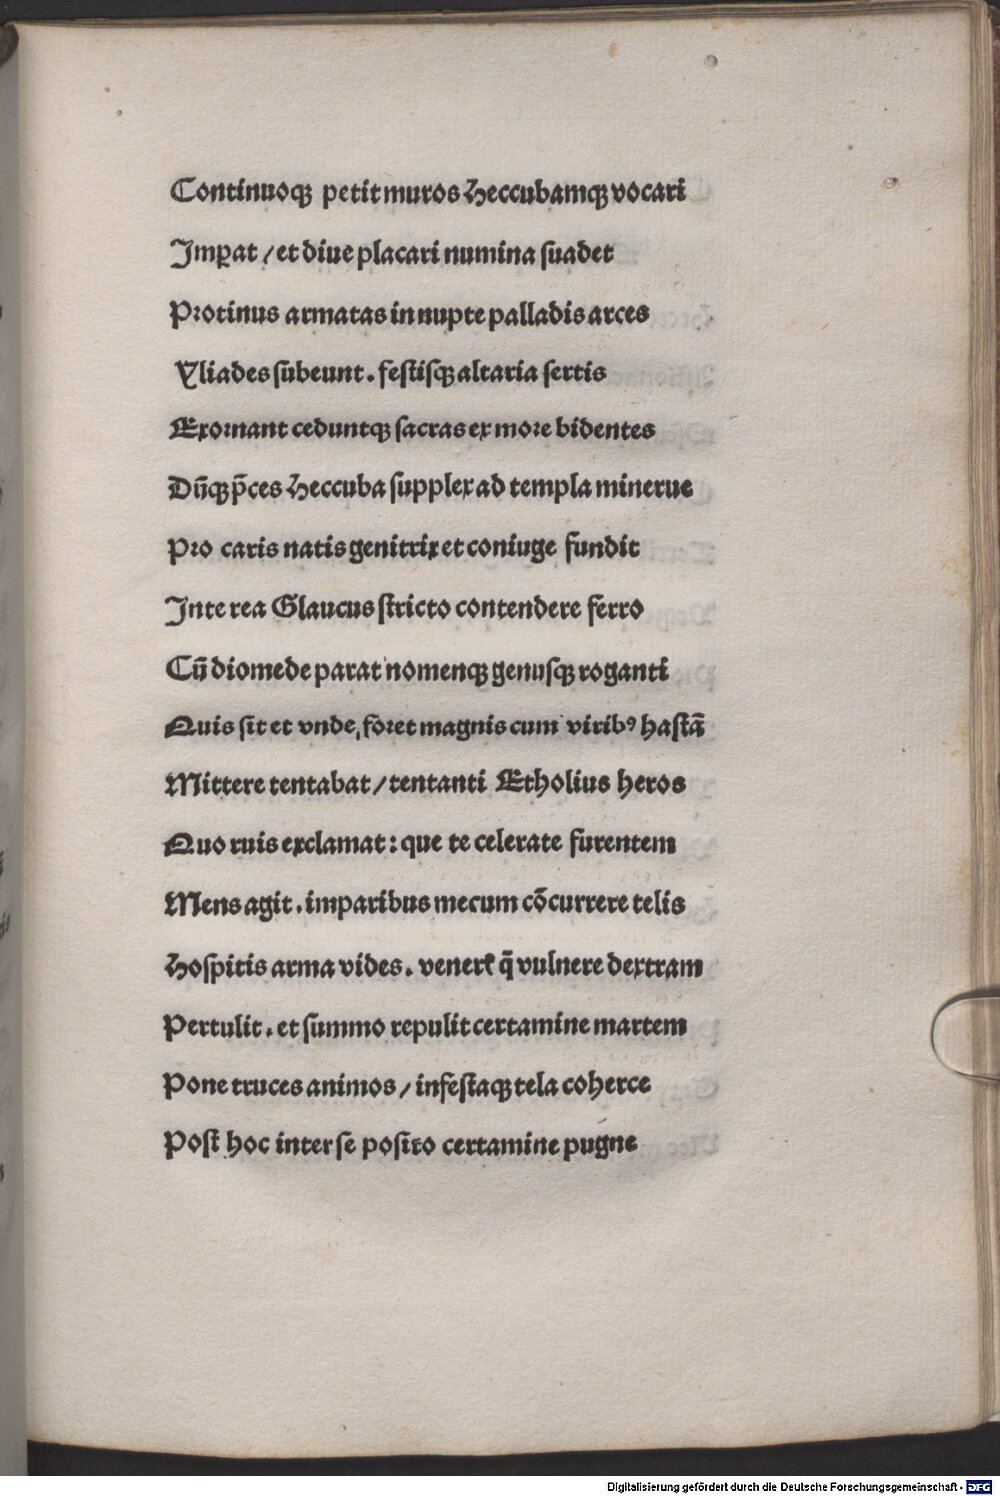 Continuoqꝫ petit muros Heccubamqꝫ vocari
Imꝑat / et diue placari numina ſuadet
Protinus armatas in nupte palladis arces
Yliades ſubeunt. feſtiſqꝫ altaria ſertis
Exornant ceduntqꝫ ſacras ex more bidentes
Dūqꝫ p̄ces Heccuba ſupplex ad templa minerue
Pro caris natis genitrix et coniuge fundit
Inte rea Glaucus ſtricto contendere ferro
Cū diomede parat nomenqꝫ genuſqꝫ roganti
Quis ſit et vnde, foret magnis cum viribꝰ haſtā
Mittere tentabat / tentanti Etholius heros
Quo ruis exclamat: que te celerate furentem
Mens agit. imparibus mecum cōcurrere telis
Hoſpitis arma vides. venerꝭ q̄ vulnere dextram
Pertulit. et ſummo repulit certamine martem
Pone truces animos / infeſtaqꝫ tela coherce
Poſt hoc inter ſe poſito certamine pugne
Digitalisierung gefördert durch die Deutsche Forschungsgemeinschaft - DFG